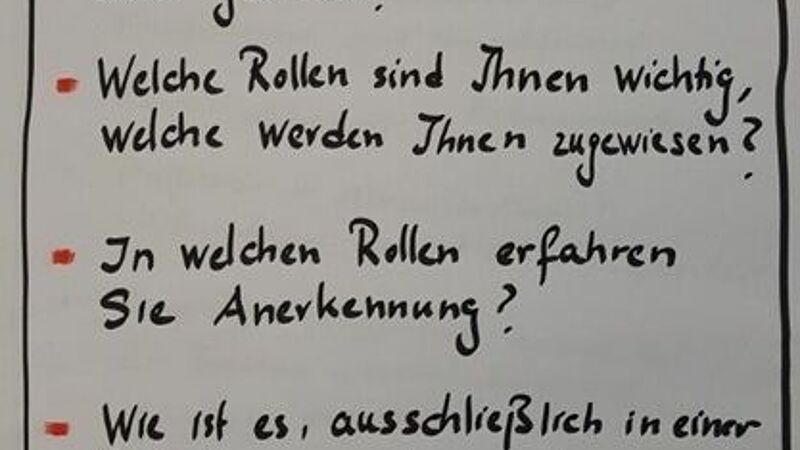 Welche Rollen sind Ihnen wichtig,
welche werden Ihnen zugewiesen?
In welchen Rollen erfahren
Sie Anerkennung?
Wie ist es, ausschließlich in einer